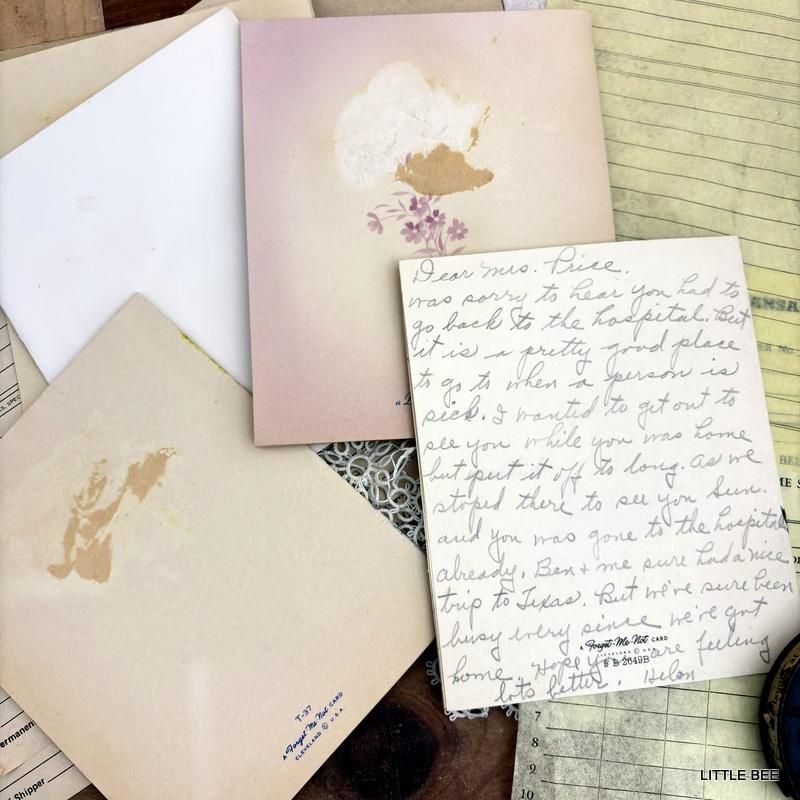 Dear Mrs. Price.
was sorry to hear you had to
go back to the hospital. But
it is a pretty good place
to go to when a person is
sick. I wanted to get out to
see you while you was home
but put it off to long. as we
stoped there to see you Sun.
and you was gone to the hospital
already. Ben + me sure had a nice
trip to Texas. But we've sure been
busy every since we've got
home. Hope you are feeling
lots better. Helen
A Forget-Me-Not CARD
CLEVELAND © U.S.A.
8 B 2649B
T-37
A Forget Me Not CARD
CLEVELAND © U.S.A.
a
Permanent
Shipper
7
8
9
10
LITTLE BEE